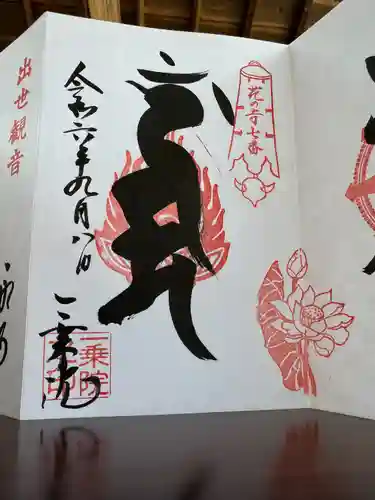 花の寺七番
令和六年九月八日
一乗院
一乗院
出世観音